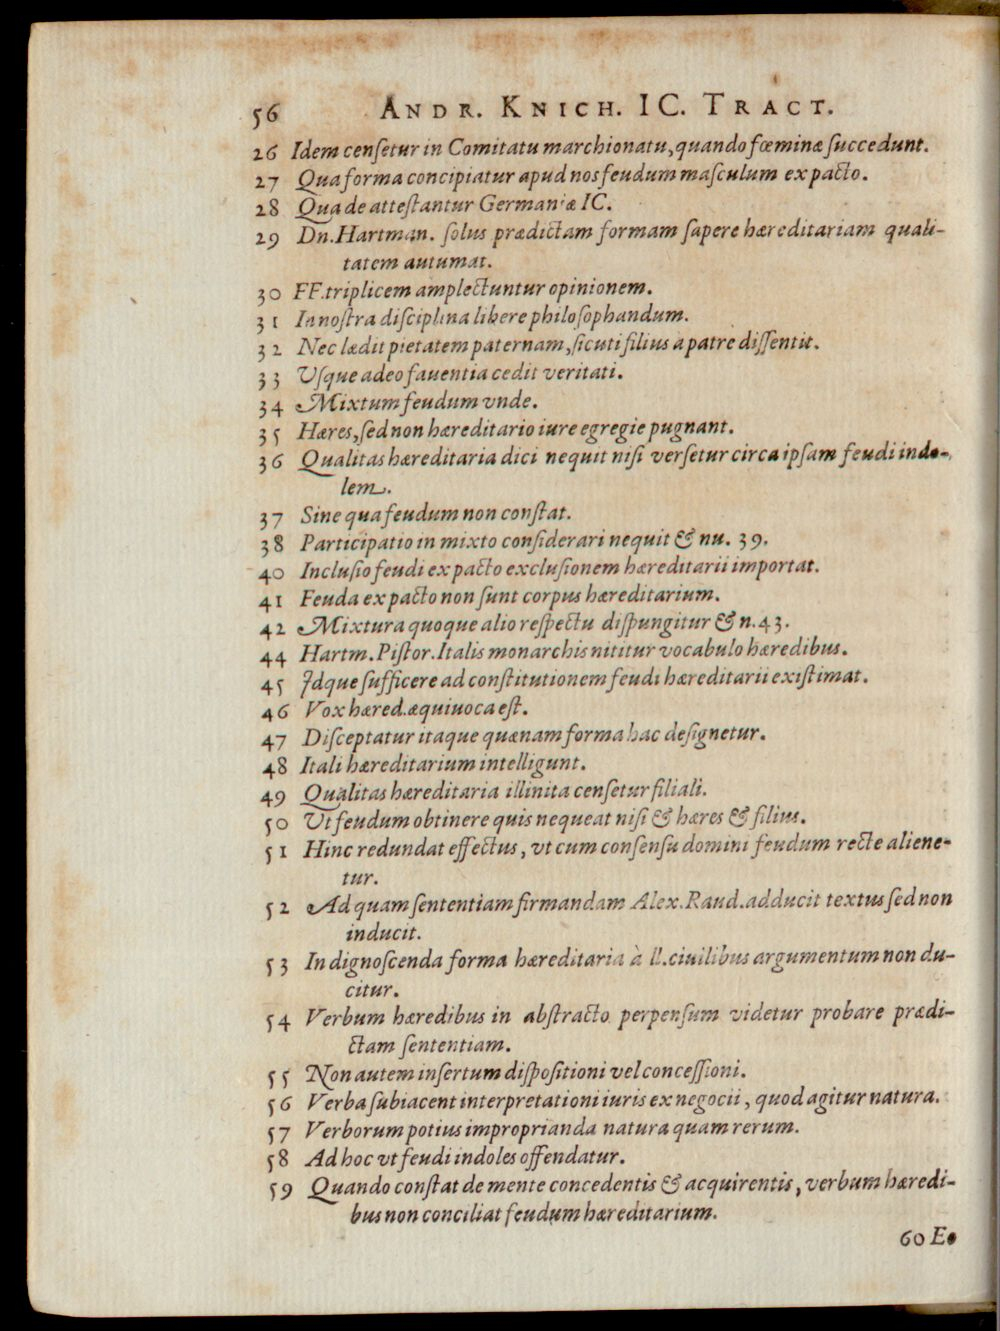 56 ANDR. KNICH. IC. TRACT.
26 Idem cenſetur in Comitatu marchionatu, quando fœminæ ſuccedunt.
27 Qua forma concipiatur apud nos feudum maſculum ex pacto.
28 Qua de atteſtantur Germaniæ IC.
29 Dn. Hartman. ſolus prædictam formam ſapere hæreditariam quali-
tatem autumat.
30 FF. triplicem amplectuntur opinionem.
31 In noſtra diſciplina libere philoſophandum.
32 Nec lædit pietatem paternam, ſicuti filius a patre diſſentit.
33 Vſque adeo fauentia cedit veritati.
34 Mixtum feudum vnde.
35 Hæres, ſed non hæreditario iure egregie pugnant.
36 Qualitas hæreditaria dici nequit niſi verſetur circa ipſam feudi indo-
lem.
37 Sine qua feudum non conſtat.
38 Participatio in mixto conſiderari nequit & nu. 39.
40 Incluſio feudi ex pacto excluſionem hæreditarii importat.
41 Feuda ex pacto non ſunt corpus hæreditarium.
42 Mixtura quoque alio reſpectu diſpungitur & n. 43.
44 Hartm. Piſtor. Italis monarchis nititur vocabulo hæredibus.
45 Idque ſufficere ad conſtitutionem feudi hæreditarii exiſtimat.
46 Vox hæred. æquiuoca eſt.
47 Diſceptatur itaque quænam forma hac deſignetur.
48 Itali hæreditarium intelligunt.
49 Qualitas hæreditaria illinita cenſetur filiali.
50 Vt feudum obtinere quis nequeat niſi & hæres & filius.
51 Hinc redundat effectus, vt cum conſenſu domini feudum recte aliene-
tur.
52 Ad quam ſententiam firmandam Alex. Raud. adducit textus ſed non
inducit.
53 In dignoſcenda forma hæreditaria à ll. ciuilibus argumentum non du-
citur.
54 Verbum hæredibus in abſtracto perpenſum videtur probare prædi-
ctam ſententiam.
55 Non autem inſertum diſpoſitioni vel conceſſioni.
56 Verba ſubiacent interpretationi iuris ex negocii, quod agitur natura.
57 Verborum potius improprianda natura quam rerum.
58 Ad hoc vt feudi indoles offendatur.
59 Quando conſtat de mente concedentis & acquirentis, verbum hæredi-
bus non conciliat feudum hæreditarium.
60 E